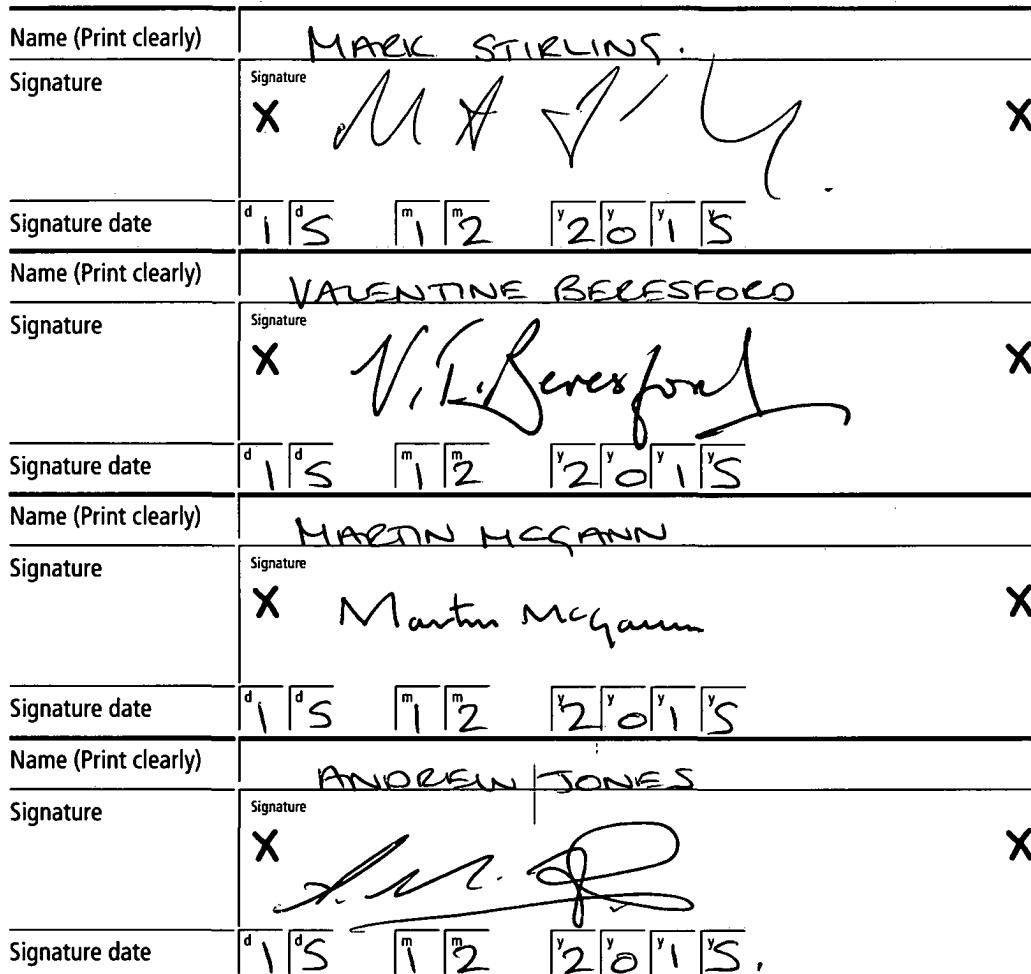 Name (Print clearly) MARK STIRLING.
Signature Signature
X X
Signature date d1 d5 m1 m2 y2 y0 y1 y5
Name (Print clearly) VALENTINE BERESFORD
Signature Signature
X V. T. Beresford X
Signature date d1 d5 m1 m2 y2 y0 y1 y5
Name (Print clearly) MARTIN MCGANN
Signature Signature
X Martin McGann X
Signature date d1 d5 m1 m2 y2 y0 y1 y5
Name (Print clearly) ANDREW JONES
Signature Signature
X X
Signature date d1 d5 m1 m2 y2 y0 y1 y5.